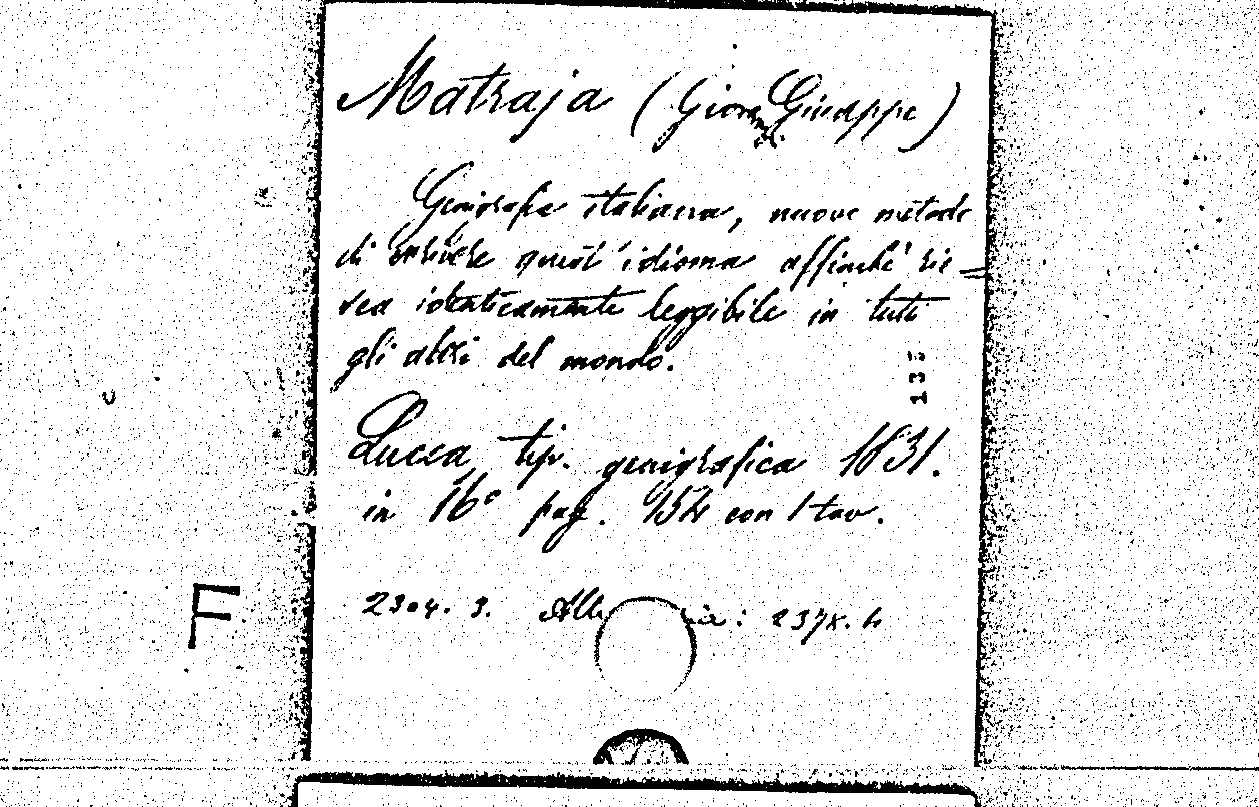 Matraja (Giovanni Giuseppe)
Genigrafia italiana, nuovo metodo
di scrivere quest'idioma affinché rie=
sca identicamente leggibile in tutti
gli altri del mondo.
133
Lucca tip. genigrafica 1831.
in 16° pag. 154 con 1 tav.
2304. 3.
F